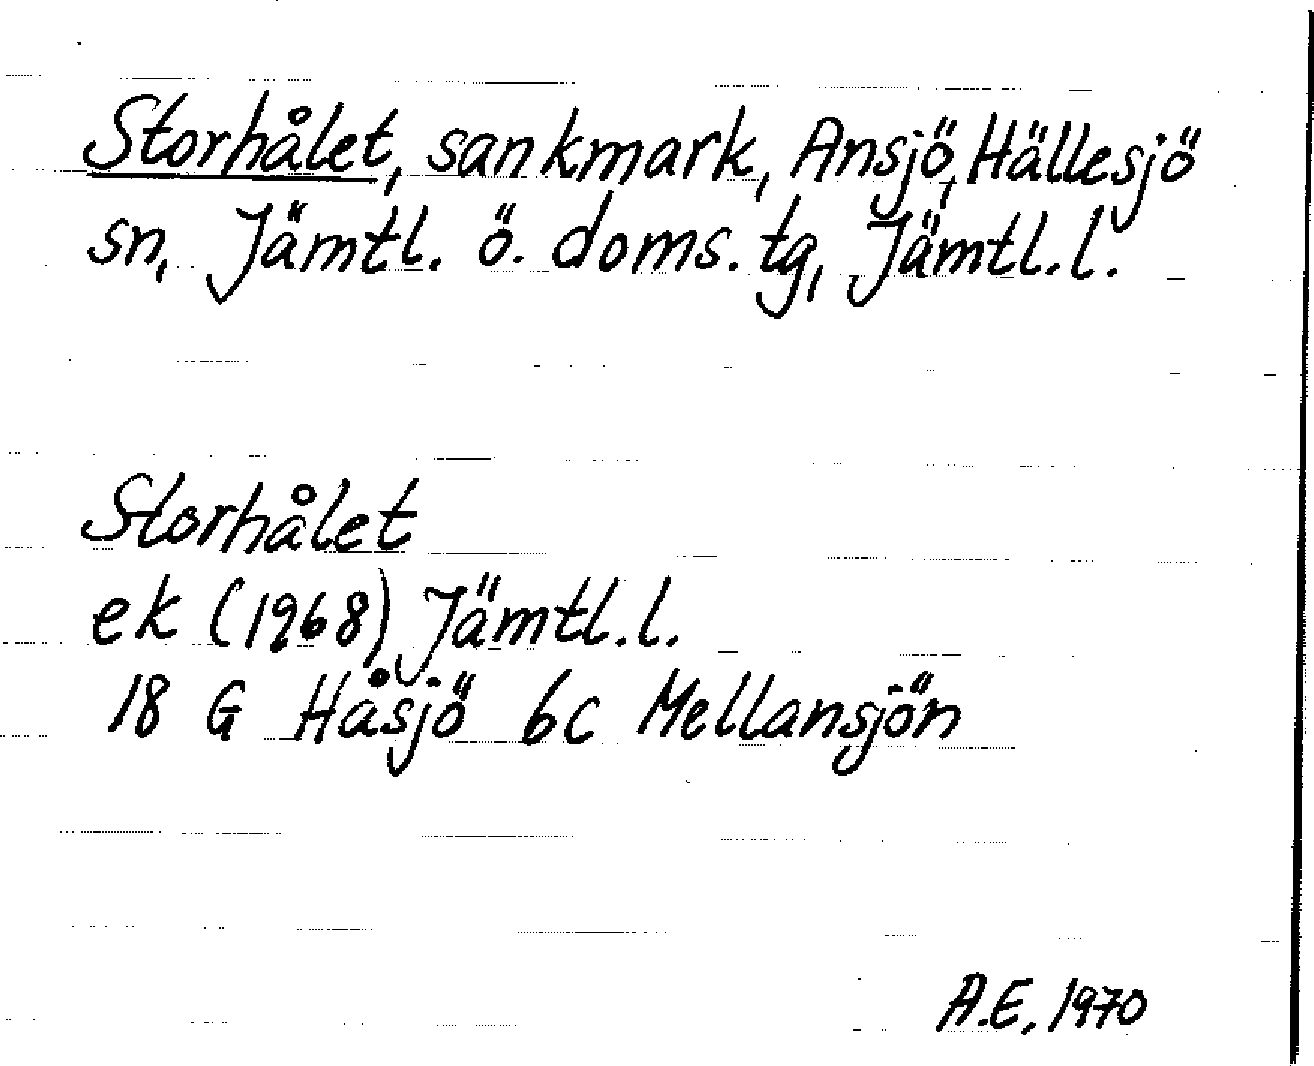 Storhålet, sankmark, Ansjö, Hällesjö
sn, Jämtl. ö. doms. tg, Jämtl. l.
Storhålet
ek (1968) Jämtl. l.
18 G Håsjö 6c Mellansjön
A.E, 1970